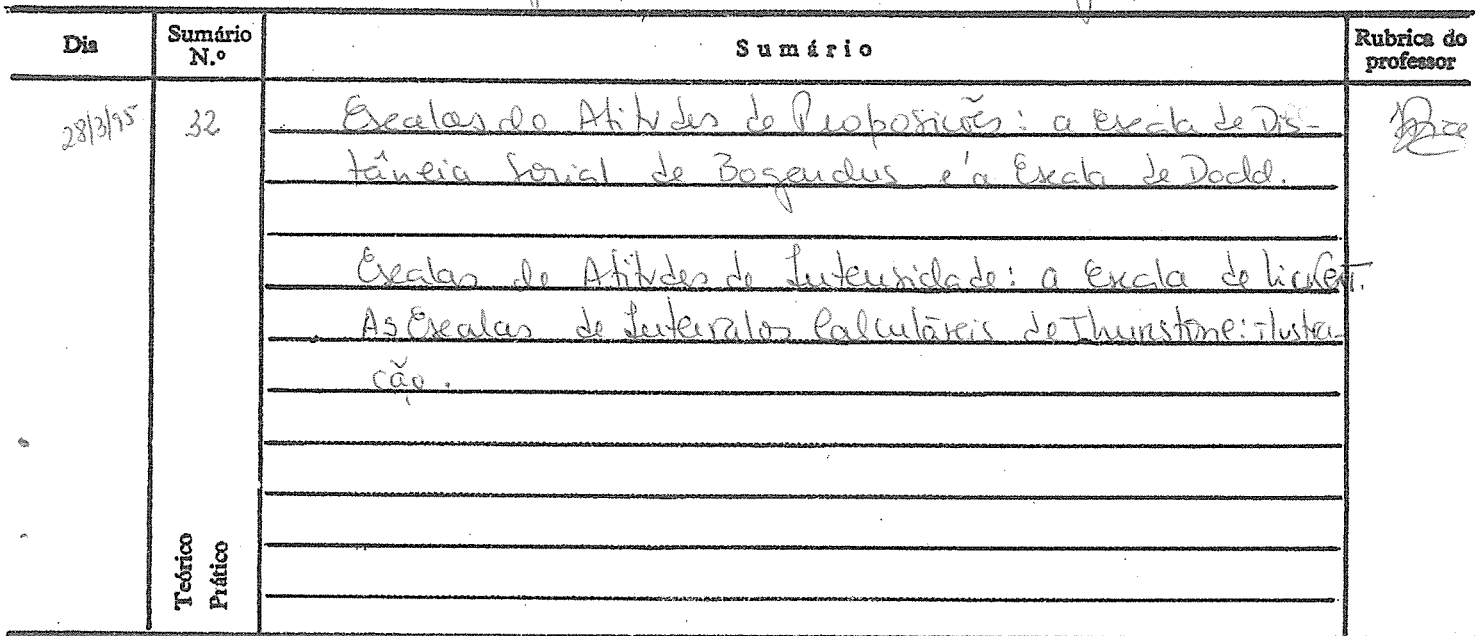 Dia Sumário N.º Sumário Rubrica do professor
28/3/95 32 Escalas de Atitudes de Proposições: a escala de Dis-
tância Social de Bogardus e a Escala de Dodd.
Escalas de Atitudes de Intensidade: a Escala de Likert.
As Escalas de Intervalos Calculáveis de Thurstone: ilustra-
ção.
Teórico
Prático